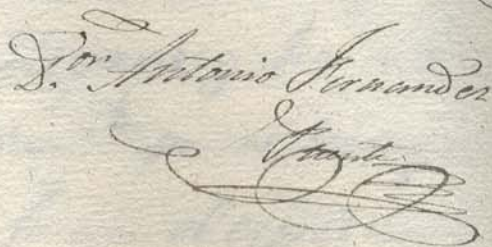 D.or Antonio Fernandez
Puente